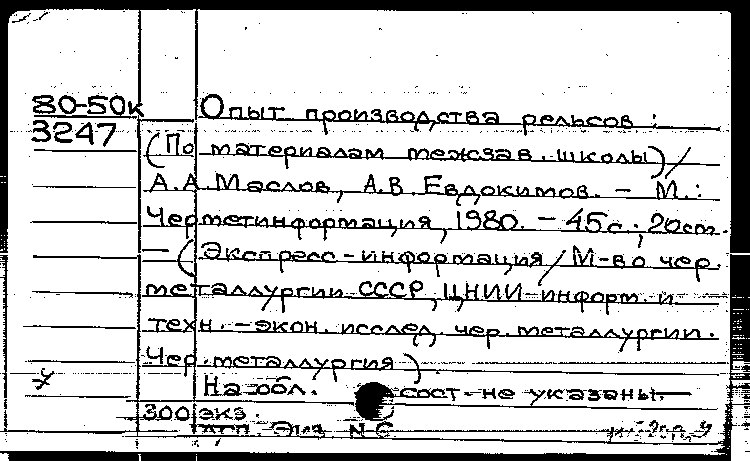 80-50к
3247
Опыт производства рельсов :
(По материалам межзав. школы) /
А.А. Маслов, А.В. Евдокимов. – М.:
Черметинформация, 1980. – 45с.; 20см.
– (Экспресс-информация / М-во чер.
металлургии СССР, ЦНИИ информ. и
техн.-экон. исслед. чер. металлургии.
Чер. металлургия).
На обл. сост. не указаны.
300 экз.